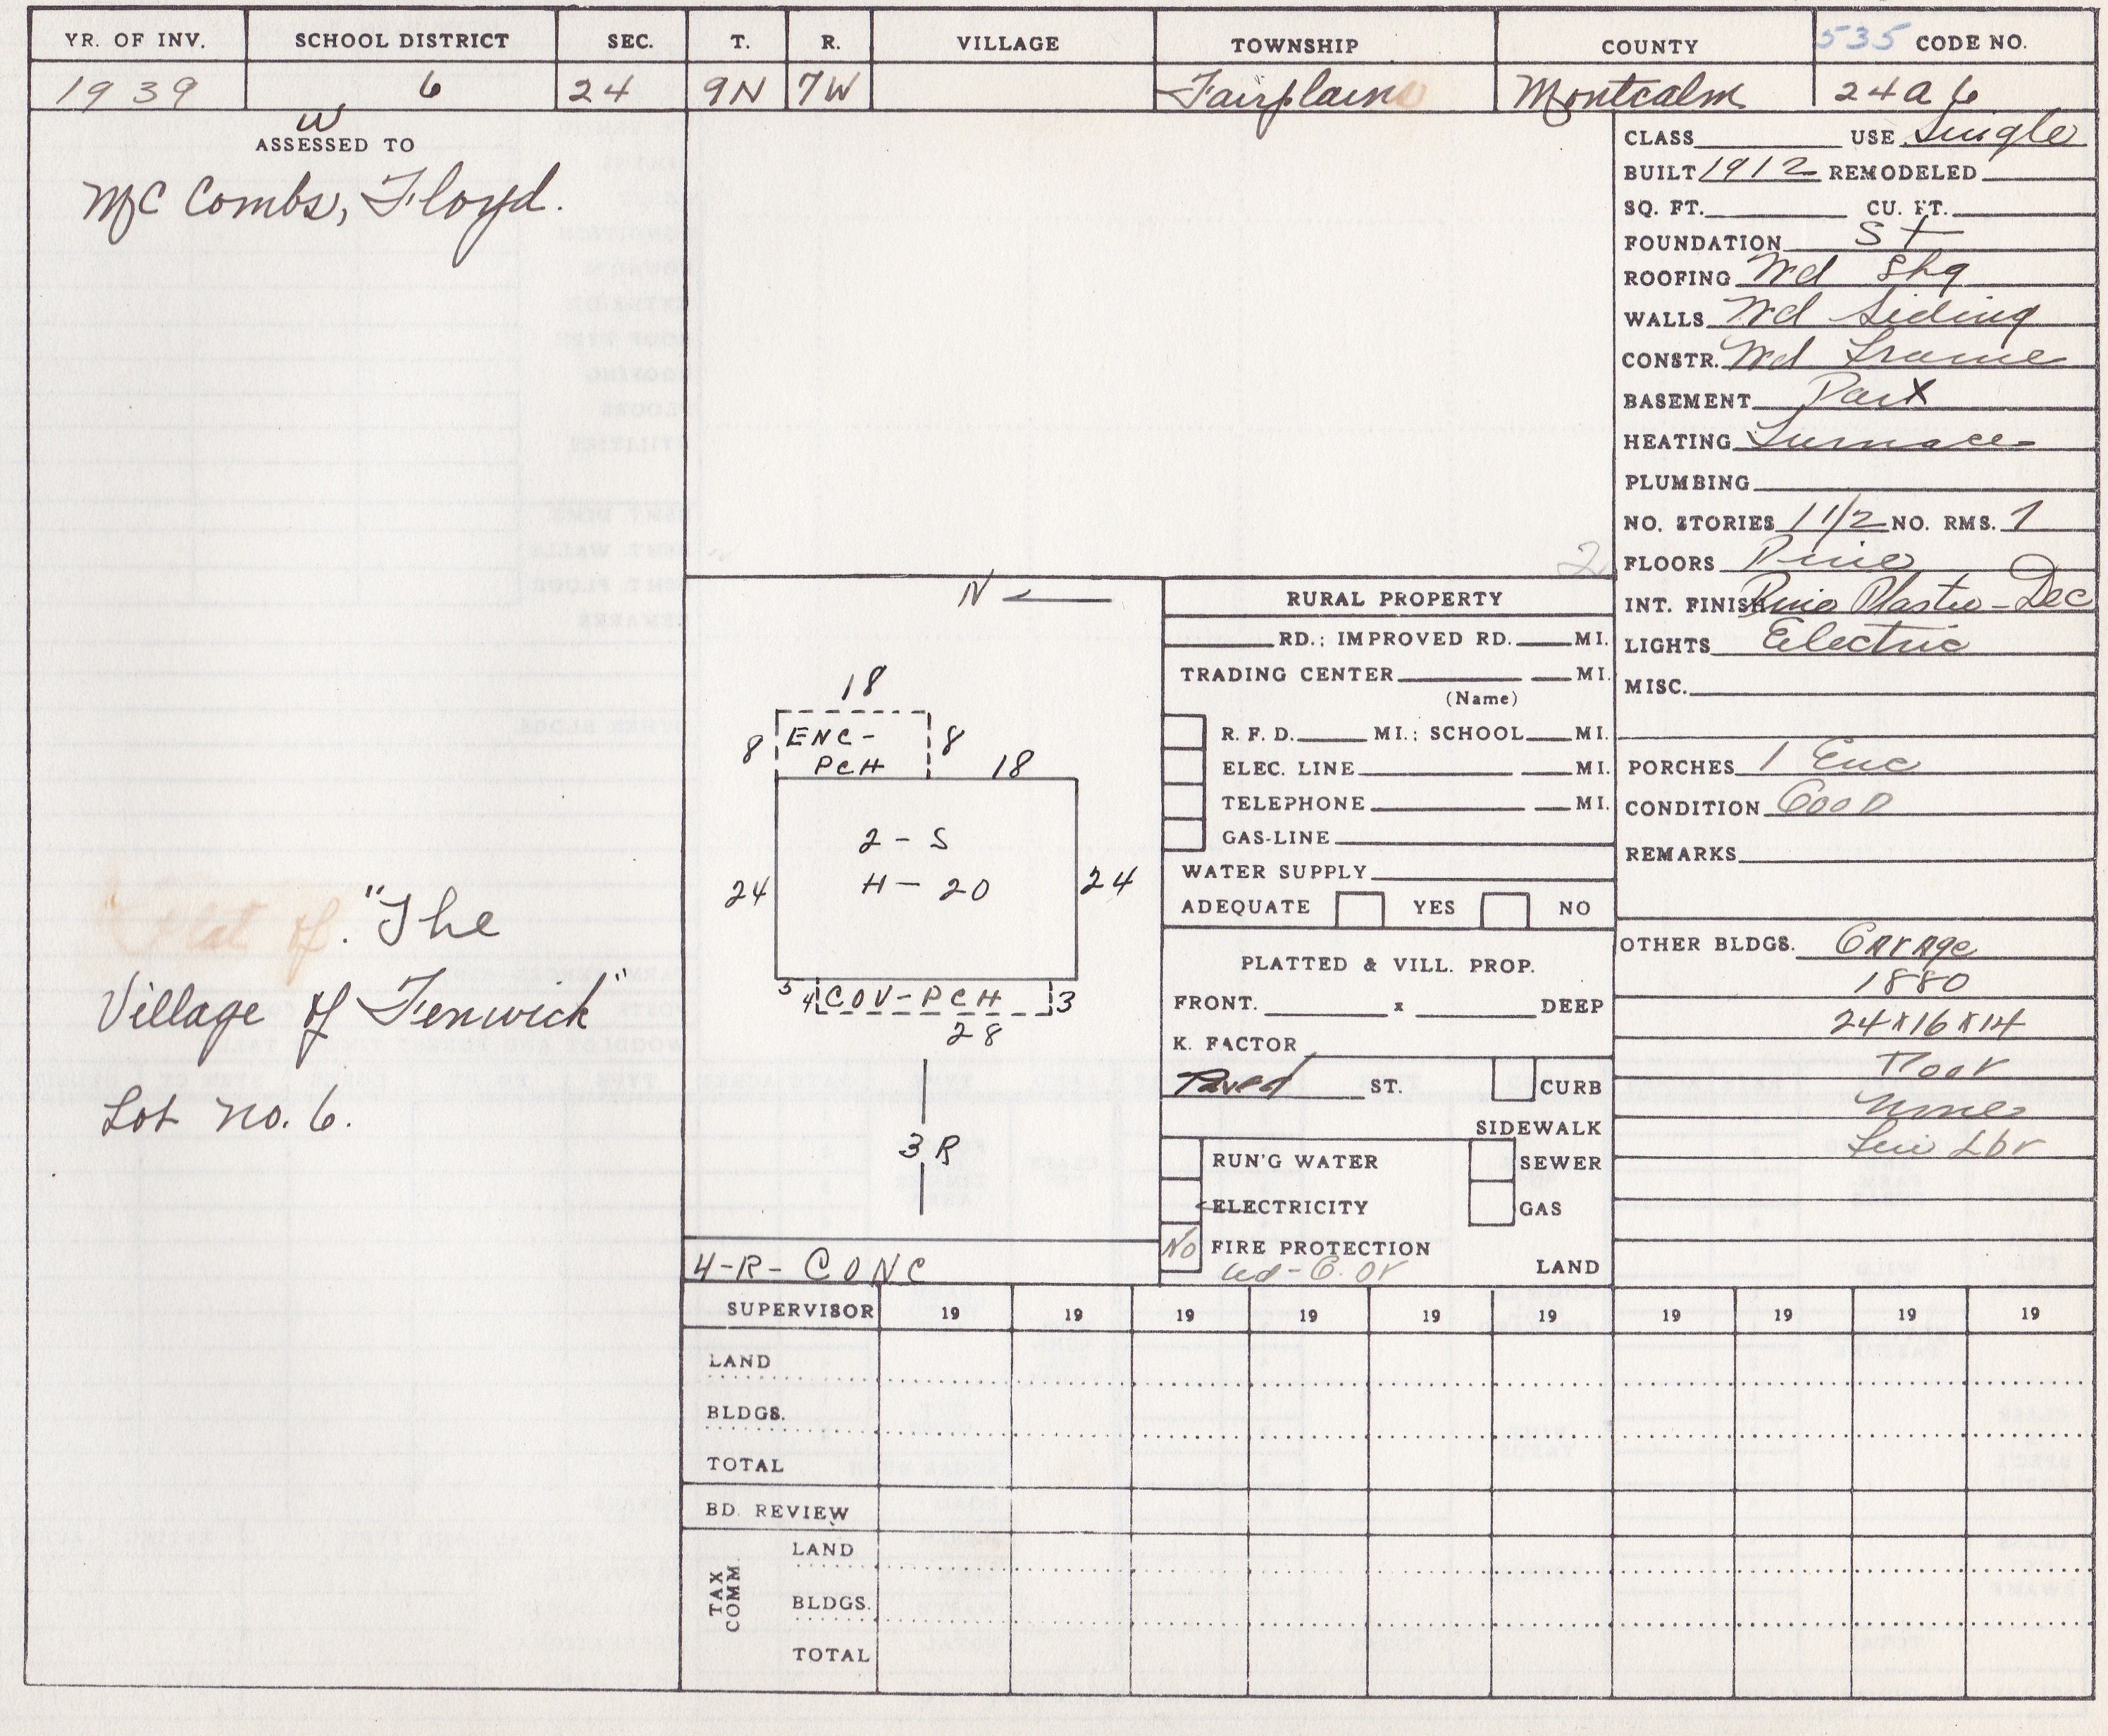 535
YR. OF INV. SCHOOL DISTRICT SEC. T. R. VILLAGE TOWNSHIP COUNTY CODE NO.
1939 6 24 9N 7W Fairplains Montcalm 24a6
W
ASSESSED TO
Mc Combs, Floyd.
"The
Village of Fenwick"
Lot no. 6.
2
N
18
8 ENC- 8
PCH 18
2 - S
24 H - 20 24
3
4 COV-PCH 3
28
3 R
4-R- CONC
RURAL PROPERTY
RD.; IMPROVED RD. MI.
TRADING CENTER MI.
(Name)
R. F. D. MI.; SCHOOL MI.
ELEC. LINE MI.
TELEPHONE MI.
GAS-LINE
WATER SUPPLY
ADEQUATE YES NO
PLATTED & VILL. PROP.
FRONT. x DEEP
K. FACTOR
Paved ST. CURB
SIDEWALK
RUN'G WATER SEWER
ELECTRICITY GAS
No FIRE PROTECTION
LAND
CLASS USE Single
BUILT 1912 REMODELED
SQ. FT. CU. FT.
FOUNDATION St
ROOFING Wd Shg
WALLS Wd Siding
CONSTR. Wd Frame
BASEMENT Part
HEATING Furnace
PLUMBING
NO. STORIES 1 1/2 NO. RMS. 7
FLOORS Pine
INT. FINISH Pine Plaster-Dec
LIGHTS Electric
MISC.
PORCHES 1 Enc
CONDITION Good
REMARKS
OTHER BLDGS. Garage
1880
24x16x14
Poor
None
Lbr
SUPERVISOR 19 19 19 19 19 19 19 19 19 19
LAND
BLDGS.
TOTAL
BD. REVIEW
TAX COMM.
LAND
BLDGS.
TOTAL